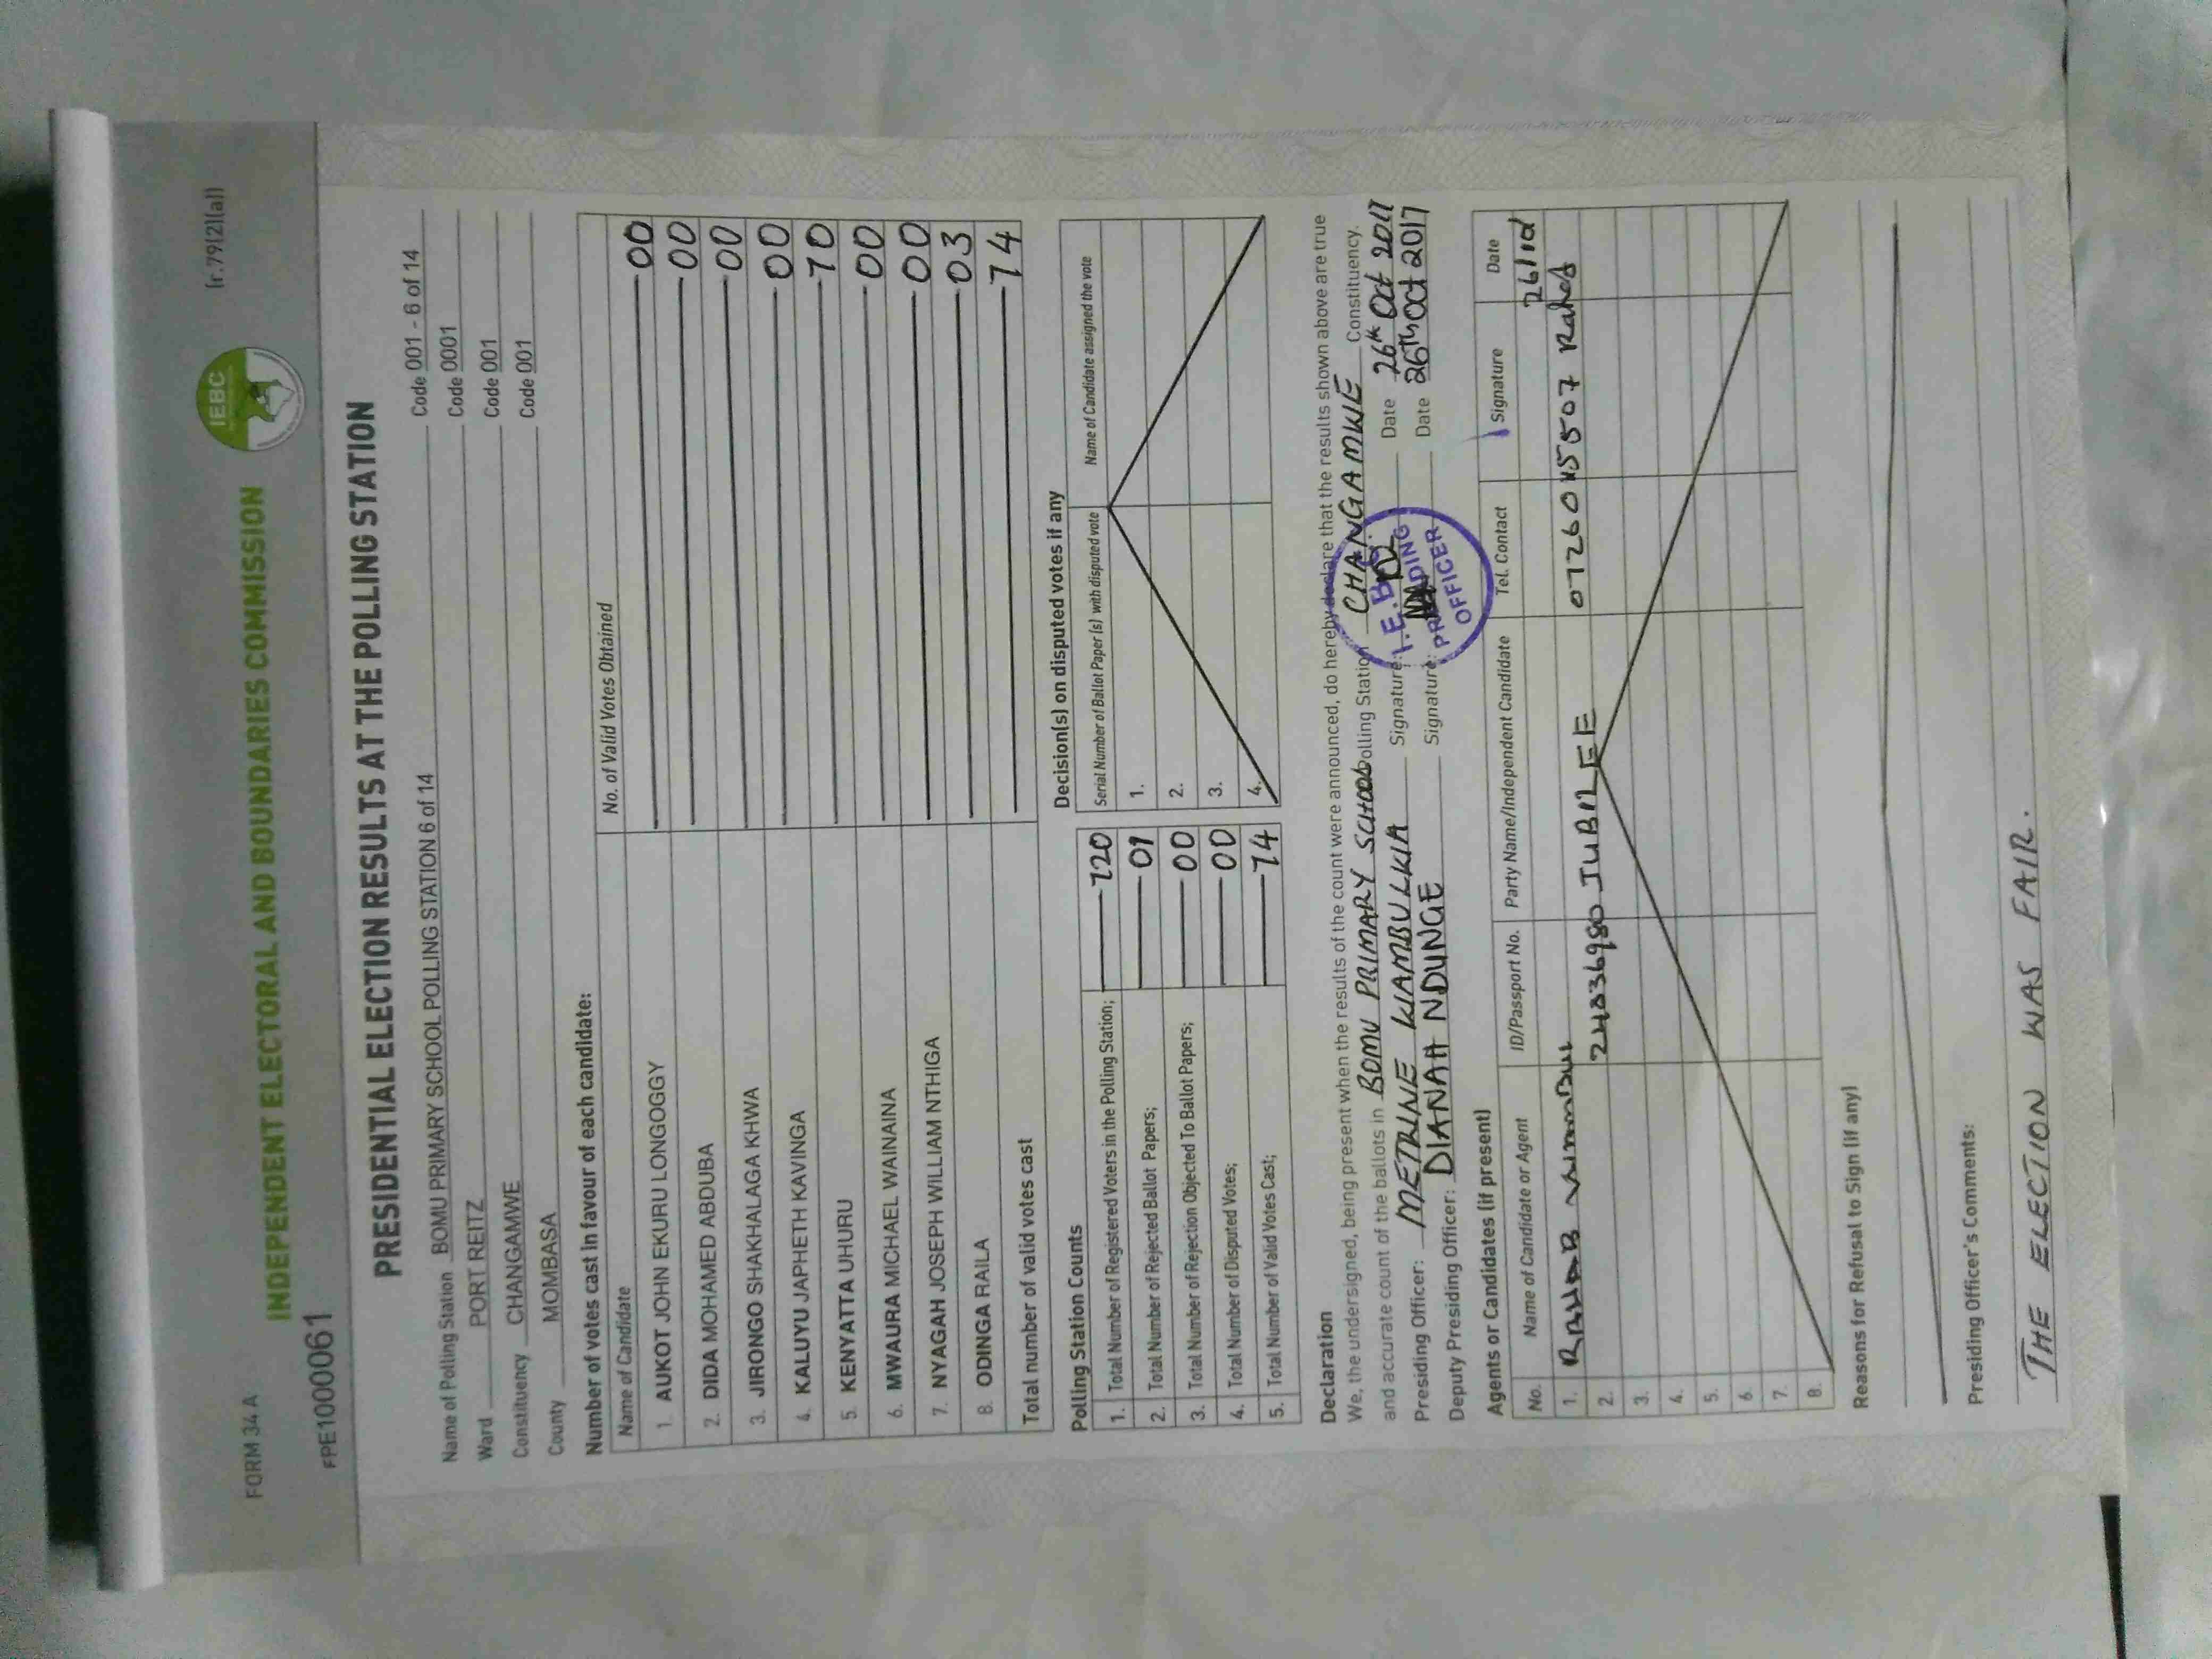 FORM 34 A
(r.79(2)(a))
INDEPENDENT ELECTORAL AND BOUNDARIES COMMISSION
IEBC
FPE1000061
PRESIDENTIAL ELECTION RESULTS AT THE POLLING STATION
Name of Polling Station BOMU PRIMARY SCHOOL POLLING STATION 6 of 14 Code 001 - 6 of 14
Ward PORT REITZ Code 0001
Constituency CHANGAMWE Code 001
County MOMBASA Code 001
Number of votes cast in favour of each candidate:
Name of Candidate No. of Valid Votes Obtained
1. AUKOT JOHN EKURU LONGOGGY 00
2. DIDA MOHAMED ABDUBA 00
3. JIRONGO SHAKHALAGA KHWA 00
4. KALUYU JAPHETH KAVINGA 00
5. KENYATTA UHURU 70
6. MWAURA MICHAEL WAINAINA 00
7. NYAGAH JOSEPH WILLIAM NTHIGA 00
8. ODINGA RAILA 03
Total number of valid votes cast 74
Polling Station Counts
1. Total Number of Registered Voters in the Polling Station; 720
2. Total Number of Rejected Ballot Papers; 01
3. Total Number of Rejection Objected To Ballot Papers; 00
4. Total Number of Disputed Votes; 00
5. Total Number of Valid Votes Cast; 74
Decision(s) on disputed votes if any
Serial Number of Ballot Paper (s) with disputed vote Name of Candidate assigned the vote
1.
2.
3.
4.
Declaration
We, the undersigned, being present when the results of the count were announced, do hereby declare that the results shown above are true
and accurate count of the ballots in BOMU PRIMARY SCHOOL Polling Station CHANGAMWE Constituency.
Presiding Officer: METRINE WAMBULKIA Signature: Date 26th Oct 2017
Deputy Presiding Officer: DIANAH NDUNGE Signature: Date 26th Oct 2017
I.E.B.C
PRESIDING
OFFICER
Agents or Candidates (if present)
No. Name of Candidate or Agent ID/Passport No. Party Name/Independent Candidate Tel. Contact Signature Date
1. 24836980 JUBILEE 26/10
2.
3.
4.
5.
6.
7.
8.
Reasons for Refusal to Sign (if any)
Presiding Officer's Comments:
THE ELECTION WAS FAIR.